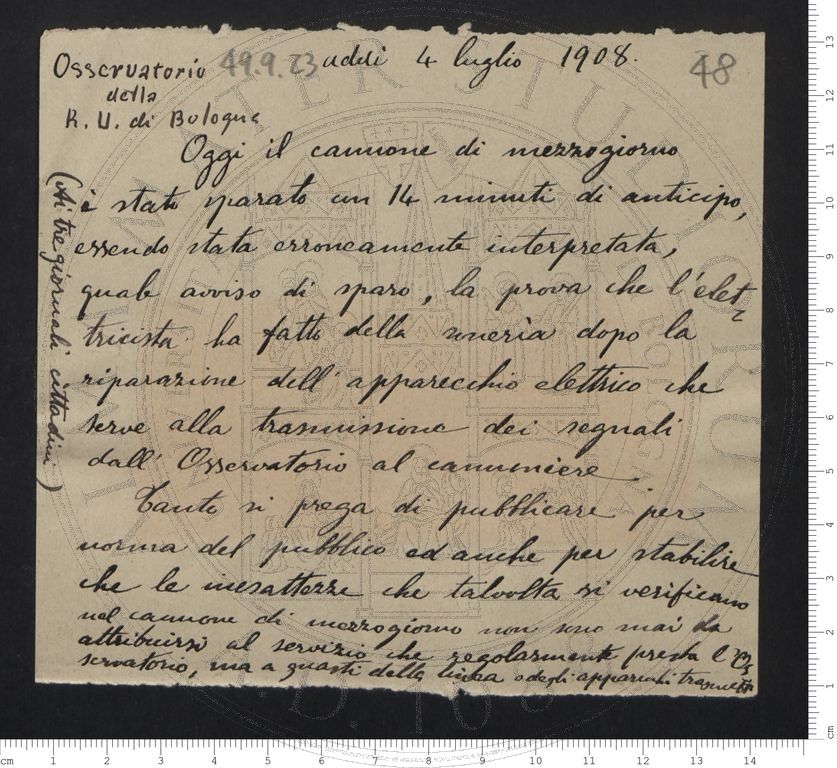 Osservatorio
della
R. U. di Bologna
49.9.23
addì 4 luglio 1908.
48
Oggi il cannone di mezzogiorno
è stato sparato con 14 minuti di anticipo,
essendo stata erroneamente interpretata,
quale avviso di sparo, la prova che l'elet-
tricista ha fatto della soneria dopo la
riparazione dell'apparecchio elettrico che
serve alla trasmissione dei segnali
dall'Osservatorio al cannoniere
Tanto si prega di pubblicare per
norma del pubblico ed anche per stabilire
che le inesattezze che talvolta si verificano
nel cannone di mezzogiorno non sono mai da
attribuirsi al servizio che regolarmente presta l'Os
servatorio, ma a guasti della linea o degli apparecchi
(Ai tre giornali cittadini)